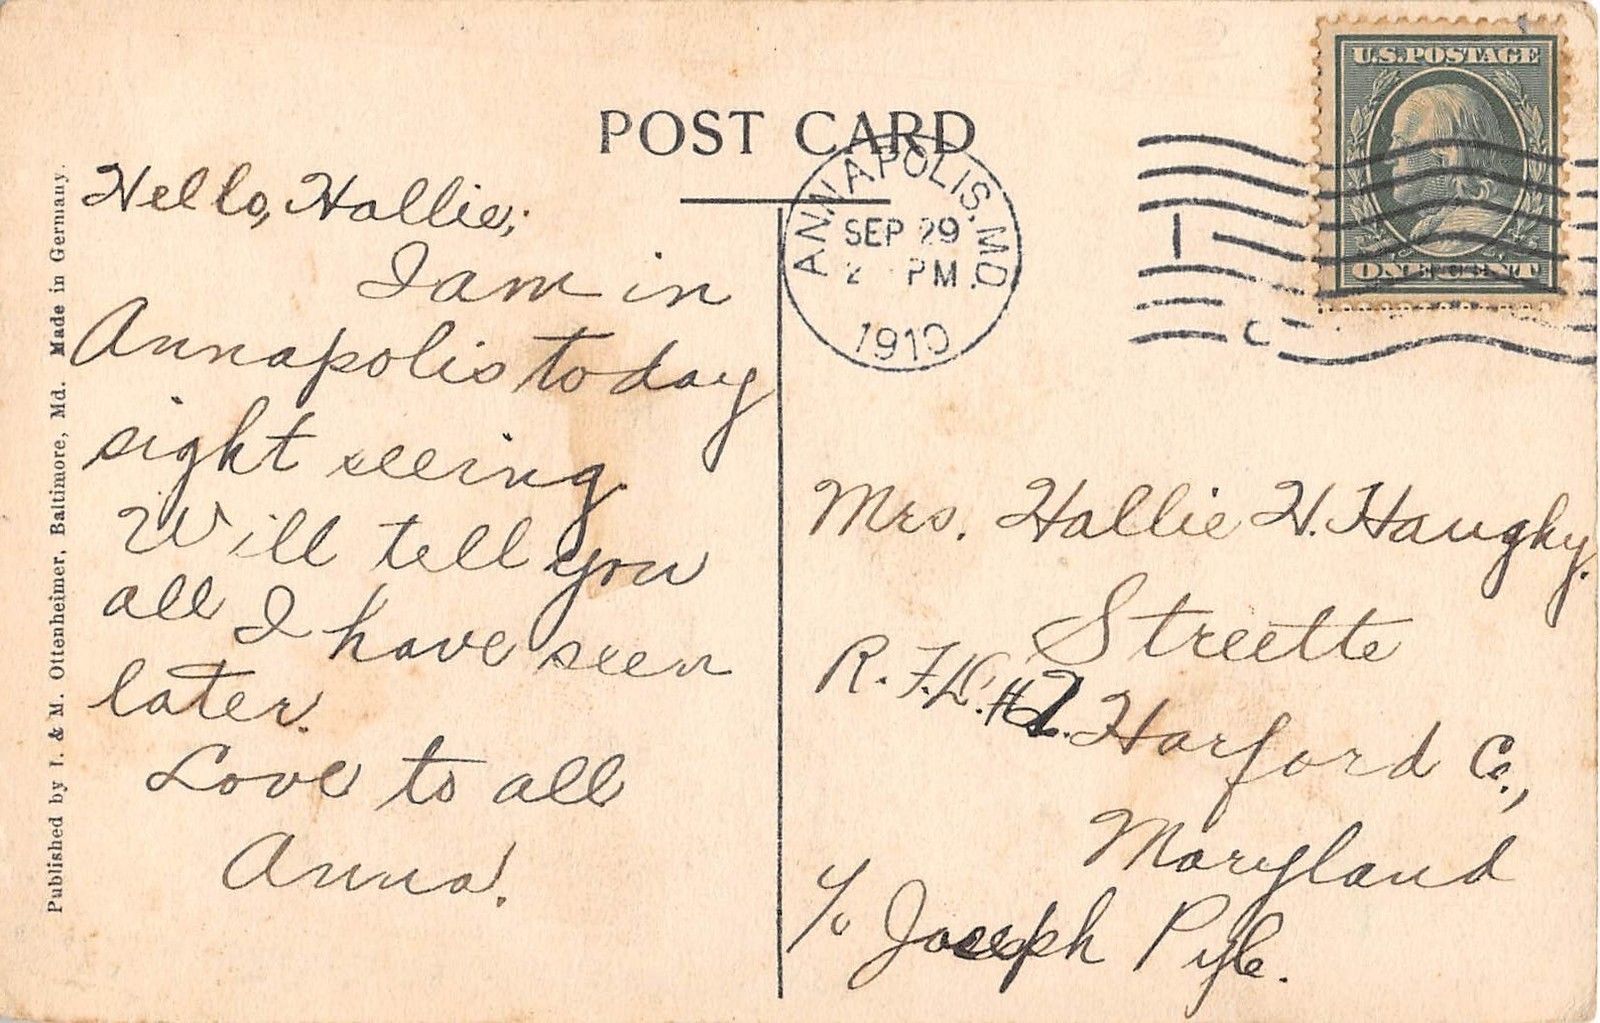 POST CARD
Published by I. & M. Ottenheimer, Baltimore, Md. Made in Germany.
Hello, Hallie;
I am in
Annapolis today
sight seeing.
Will tell you
all I have seen
later.
Love to all
Anna.
ANNAPOLIS, MD.
SEP 29
2 PM
1910
U.S. POSTAGE
ONE CENT
Mrs. Hallie H. Haughy.
Streette
R. F. D. #2. Harford Co.,
Maryland
℅ Joseph Pyle.